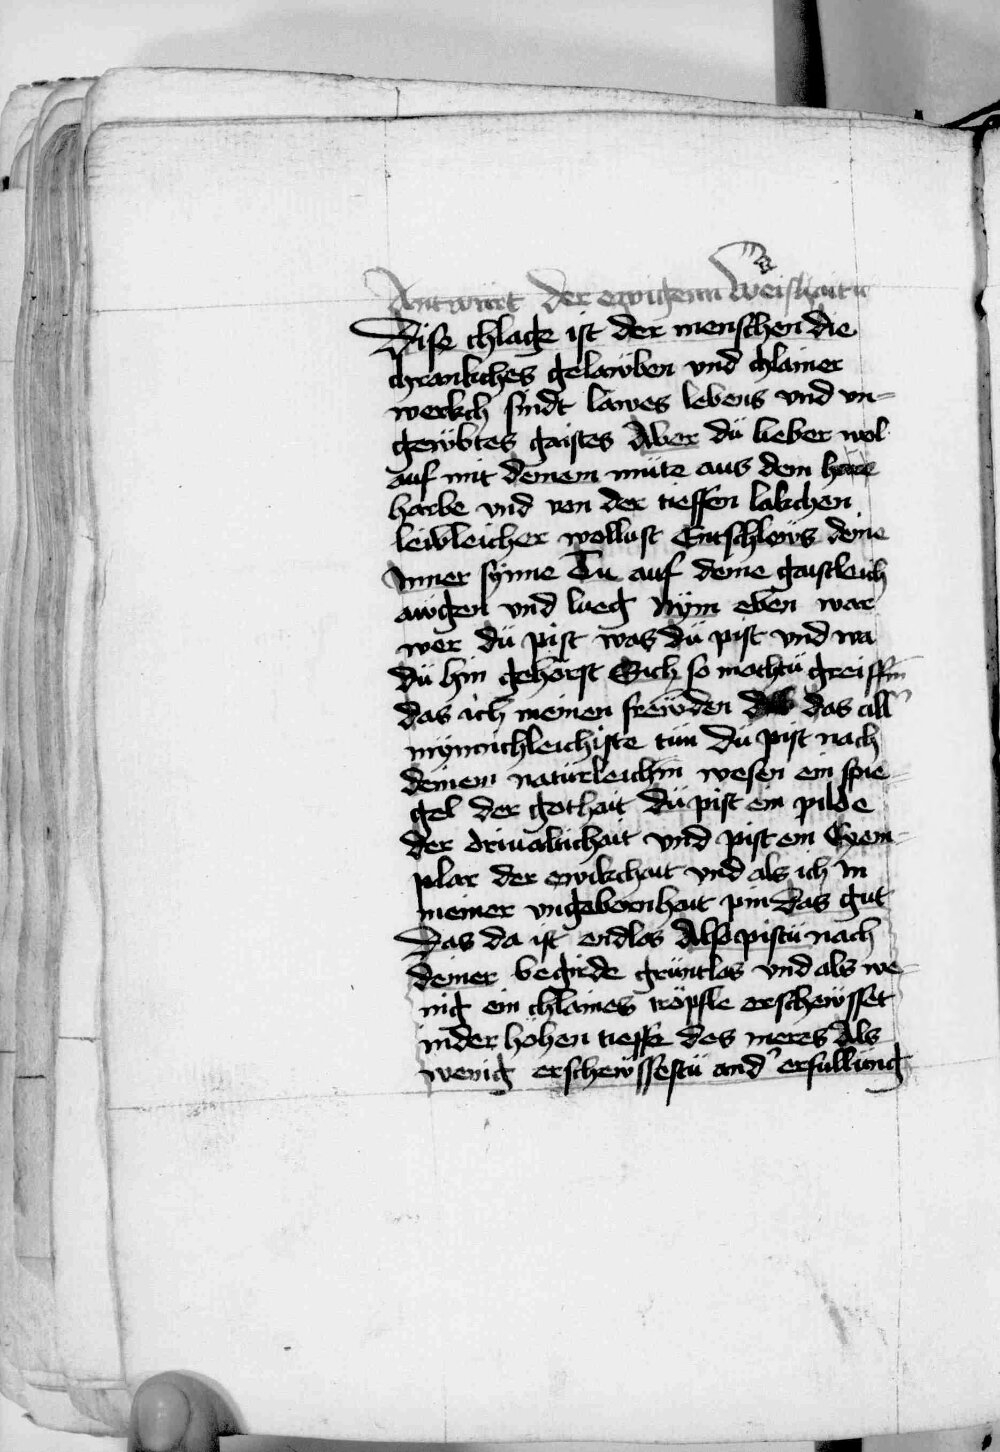 Antwurt der ewigenn Weishait
Dise chlage ist der menschen die
chrankches gelawben vnd chlainer
werkch sindt lawes lebens vnd vn-
gewbtes gaistes Aber dü lieber wol
auf mit deinem müte aus dem
horbe vnd von der tieffen lakchen
leibleicher wollust Entschlews deine
Inner synne Tu auf deine gaistleich
awgen vnd lueg Nym eben war
wer dü pist was dü pist vnd wa
dü hin gehörst Sich so machtu greiffen
das ich meinen frewden das all'
mynnichleichiste tün Dü pist nach
deinem naturleichen wesen ein spie-
gel der gothait Dü pist ein pilde
der driualtichait vnd pist ein Exem-
plar der ewikchait vnd als ich in
meiner vngebornhait pin das gut
Das da ist endlos Also pistü nach
deiner begirde grüntlos vnd als we-
nig ein chlaines tröpfle erschewsset
in der hohen tieffe des meres Als
wenig erschewssestü and' erfullüng